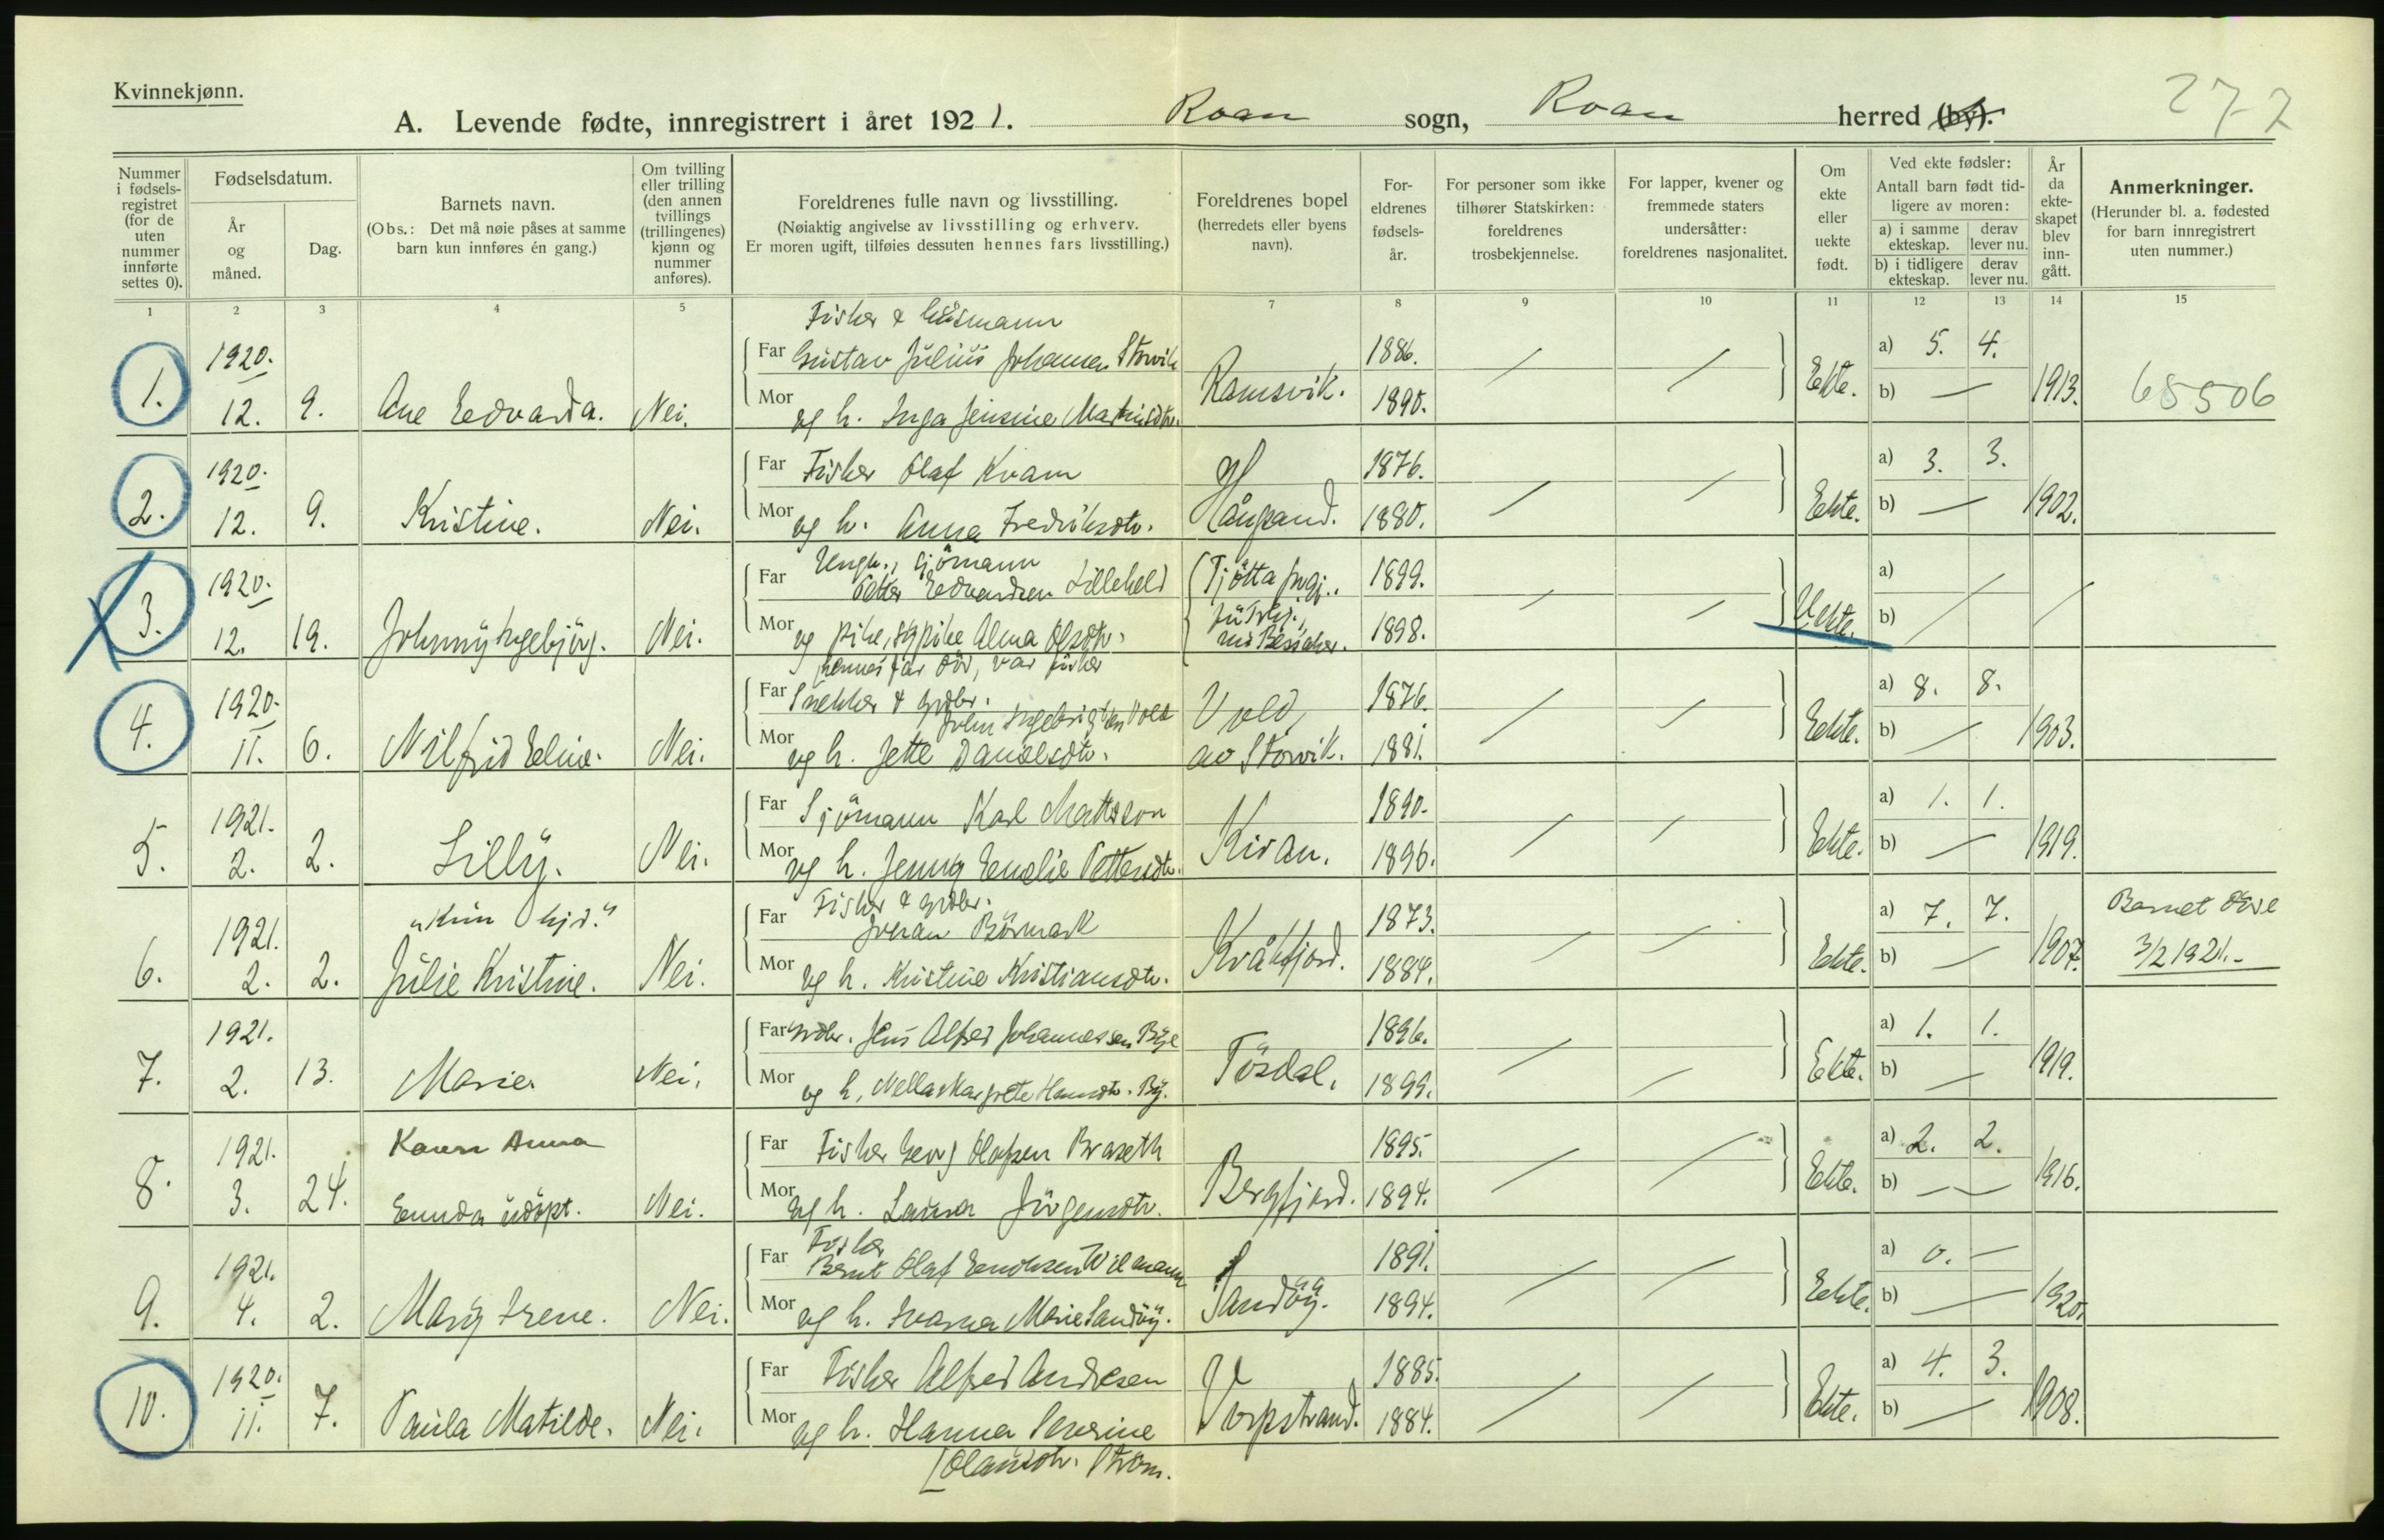 Kvinnekjønn.
272
A. Levende fødte, innregistrert i året 1921. Roan sogn, Roan herred (by).
Nummer i fødsels-registret (for de uten nummer innførte settes 0).
Fødselsdatum.
År og måned.
Dag.
Barnets navn.
(Obs.: Det må nøie påses at samme barn kun innføres én gang.)
Om tvilling eller trilling (den annen tvillings (trillingenes) kjønn og nummer anføres).
Foreldrenes fulle navn og livsstilling.
(Nøiaktig angivelse av livsstilling og erhverv.
Er moren ugift, tilføies dessuten hennes fars livsstilling.)
Foreldrenes bopel
(herredets eller byens navn).
For-eldrenes fødsels-år.
For personer som ikke tilhører Statskirken: foreldrenes trosbekjennelse.
For lapper, kvener og fremmede staters undersåtter: foreldrenes nasjonalitet.
Om ekte eller uekte født.
Ved ekte fødsler:
Antall barn født tid-ligere av moren:
a) i samme ekteskap.
derav lever nu.
b) i tidligere ekteskap.
derav lever nu.
År da ekte-skapet blev inn-gått.
Anmerkninger.
(Herunder bl. a. fødested for barn innregistrert uten nummer.)
1 2 3 4 5 7 8 9 10 11 12 13 14 15
Fisker & husmann
1. 1920. 12. 9. Ane Edvarda. Nei.
Far Gustav Julius Johansen Storvik 1886.
Mor og h. Inga Jensine Martinsdtr. Ramsvik. 1890.
Ekte. a) 5. 4. b) — 1913. 65506
2. 1920. 12. 9. Kristine. Nei.
Far Fisker Olaf Kvam 1876.
Mor og h. Anna Fredriksdtr. 1880.
Ekte. a) 3. 3. b) — 1902.
3. 1920. 12. 19. Johnny Ingebjørg. Nei.
Far Ungk., sjömann
Petter Edvardsen Lilleheld Tjötta prgj., 1899.
Mor og pike, Alma Olsdtr. 1898.
hennes far död, var fisker
Uekte. a) b)
4. 1920. 11. 6. Nilfrid Eline. Nei.
Far Snekker & grdbr.
John Ingebrigtsen Vold 1876.
Mor og h. Jette Danielsdtr. Vold, av Storvik. 1881.
Ekte. a) 8. 8. b) — 1903.
5. 1921. 2. 2. Lilly. Nei.
Far Sjömann Karl Mattsson 1890.
Mor og h. Jenny Emelie Pettersdtr. Kiran. 1896.
Ekte. a) 1. 1. b) — 1919.
6. 1921. 2. 2. "Kun hjd." Julie Kristine. Nei.
Far Fisker & grdbr.
Johan Börmark 1873.
Mor og h. Kristine Kristiansdtr. Kråkfjord. 1884.
Ekte. a) 7. 7. b) — 1907. Barnet døde 3/2 1921.-
7. 1921. 2. 13. Marie. Nei.
Far Grdbr. Jens Alfred Johannessen Bye 1896.
Mor og h. Nella Margrete Hansdtr. By. Tösdal. 1899.
Ekte. a) 1. 1. b) — 1919.
8. 1921. 3. 24. Karen Anna
Emnda udöpt. Nei.
Far Fisker Georg Olafsen Braseth 1895.
Mor og h. Laura Jörgensdtr. Bergfjord. 1894.
Ekte. a) 2. 2. b) — — 1916.
9. 1921. 4. 2. Mary Irene. Nei.
Far Fisker
Bernt Olaf Enoksen Wilmann 1891.
Mor og h. Ivarna Marie Sandöy. Sandöy. 1894.
Ekte. a) 0. — b) — 1920.
10. 1920. 11. 7. Paula Matilde. Nei.
Far Fisker Alfred Andresen 1885.
Mor og h. Hanna Severine Vorpstrand. 1884.
[Olausdtr. Ström.
Ekte. a) 4. 3. b) — 1908.